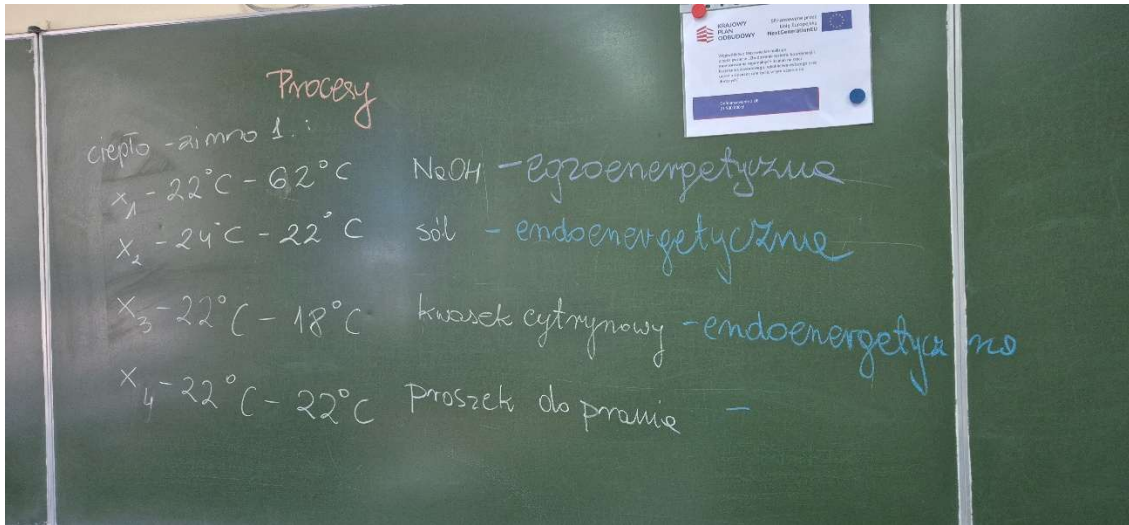 KRAJOWY
PLAN
ODBUDOWY
Sfinansowane przez
Unię Europejską
NextGenerationEU
Procesy
ciepło - zimno 1.:
x₁ - 22°C - 62°C NaOH - egzoenergetyczna
x₂ - 24°C - 22°C sól - endoenergetycznie
x₃ - 22°C - 18°C kwasek cytrynowy - endoenergetyczne
x₄ - 22°C - 22°C proszek do prania -